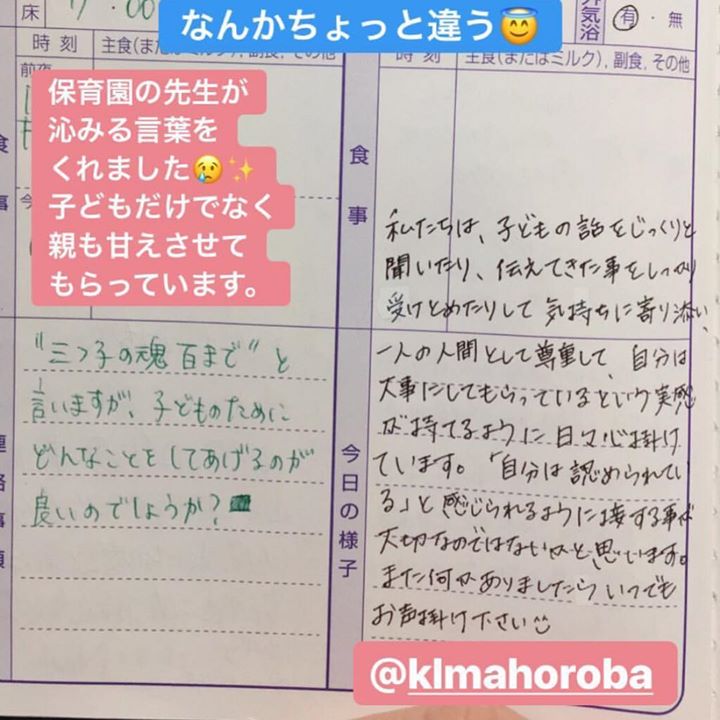 なんかちょっと違う😇
床
7:00
外気浴
有・無
時刻
主食(またはミルク),副食,その他
前夜
保育園の先生が
沁みる言葉を
くれました😢✨
子どもだけでなく
親も甘えさせて
もらっています。
“三つ子の魂百まで”と
言いますが、子どものために
どんなことをしてあげるのが
良いのでしょうか?
連絡事項
時刻
主食(またはミルク),副食,その他
食事
私たちは、子どもの話をじっくりと
聞いたり、伝えてきた事をしっかり
受けとめたりして気持ちに寄り添い、
一人の人間として尊重して、自分は
大事にしてもらっているという実感
が持てるように日々心掛け
ています。「自分は認められてい
る」と感じられるように接する事が
大切なのではないかと思います。
また何かありましたらいつでも
お声掛け下さい
今日の様子
@klmahoroba